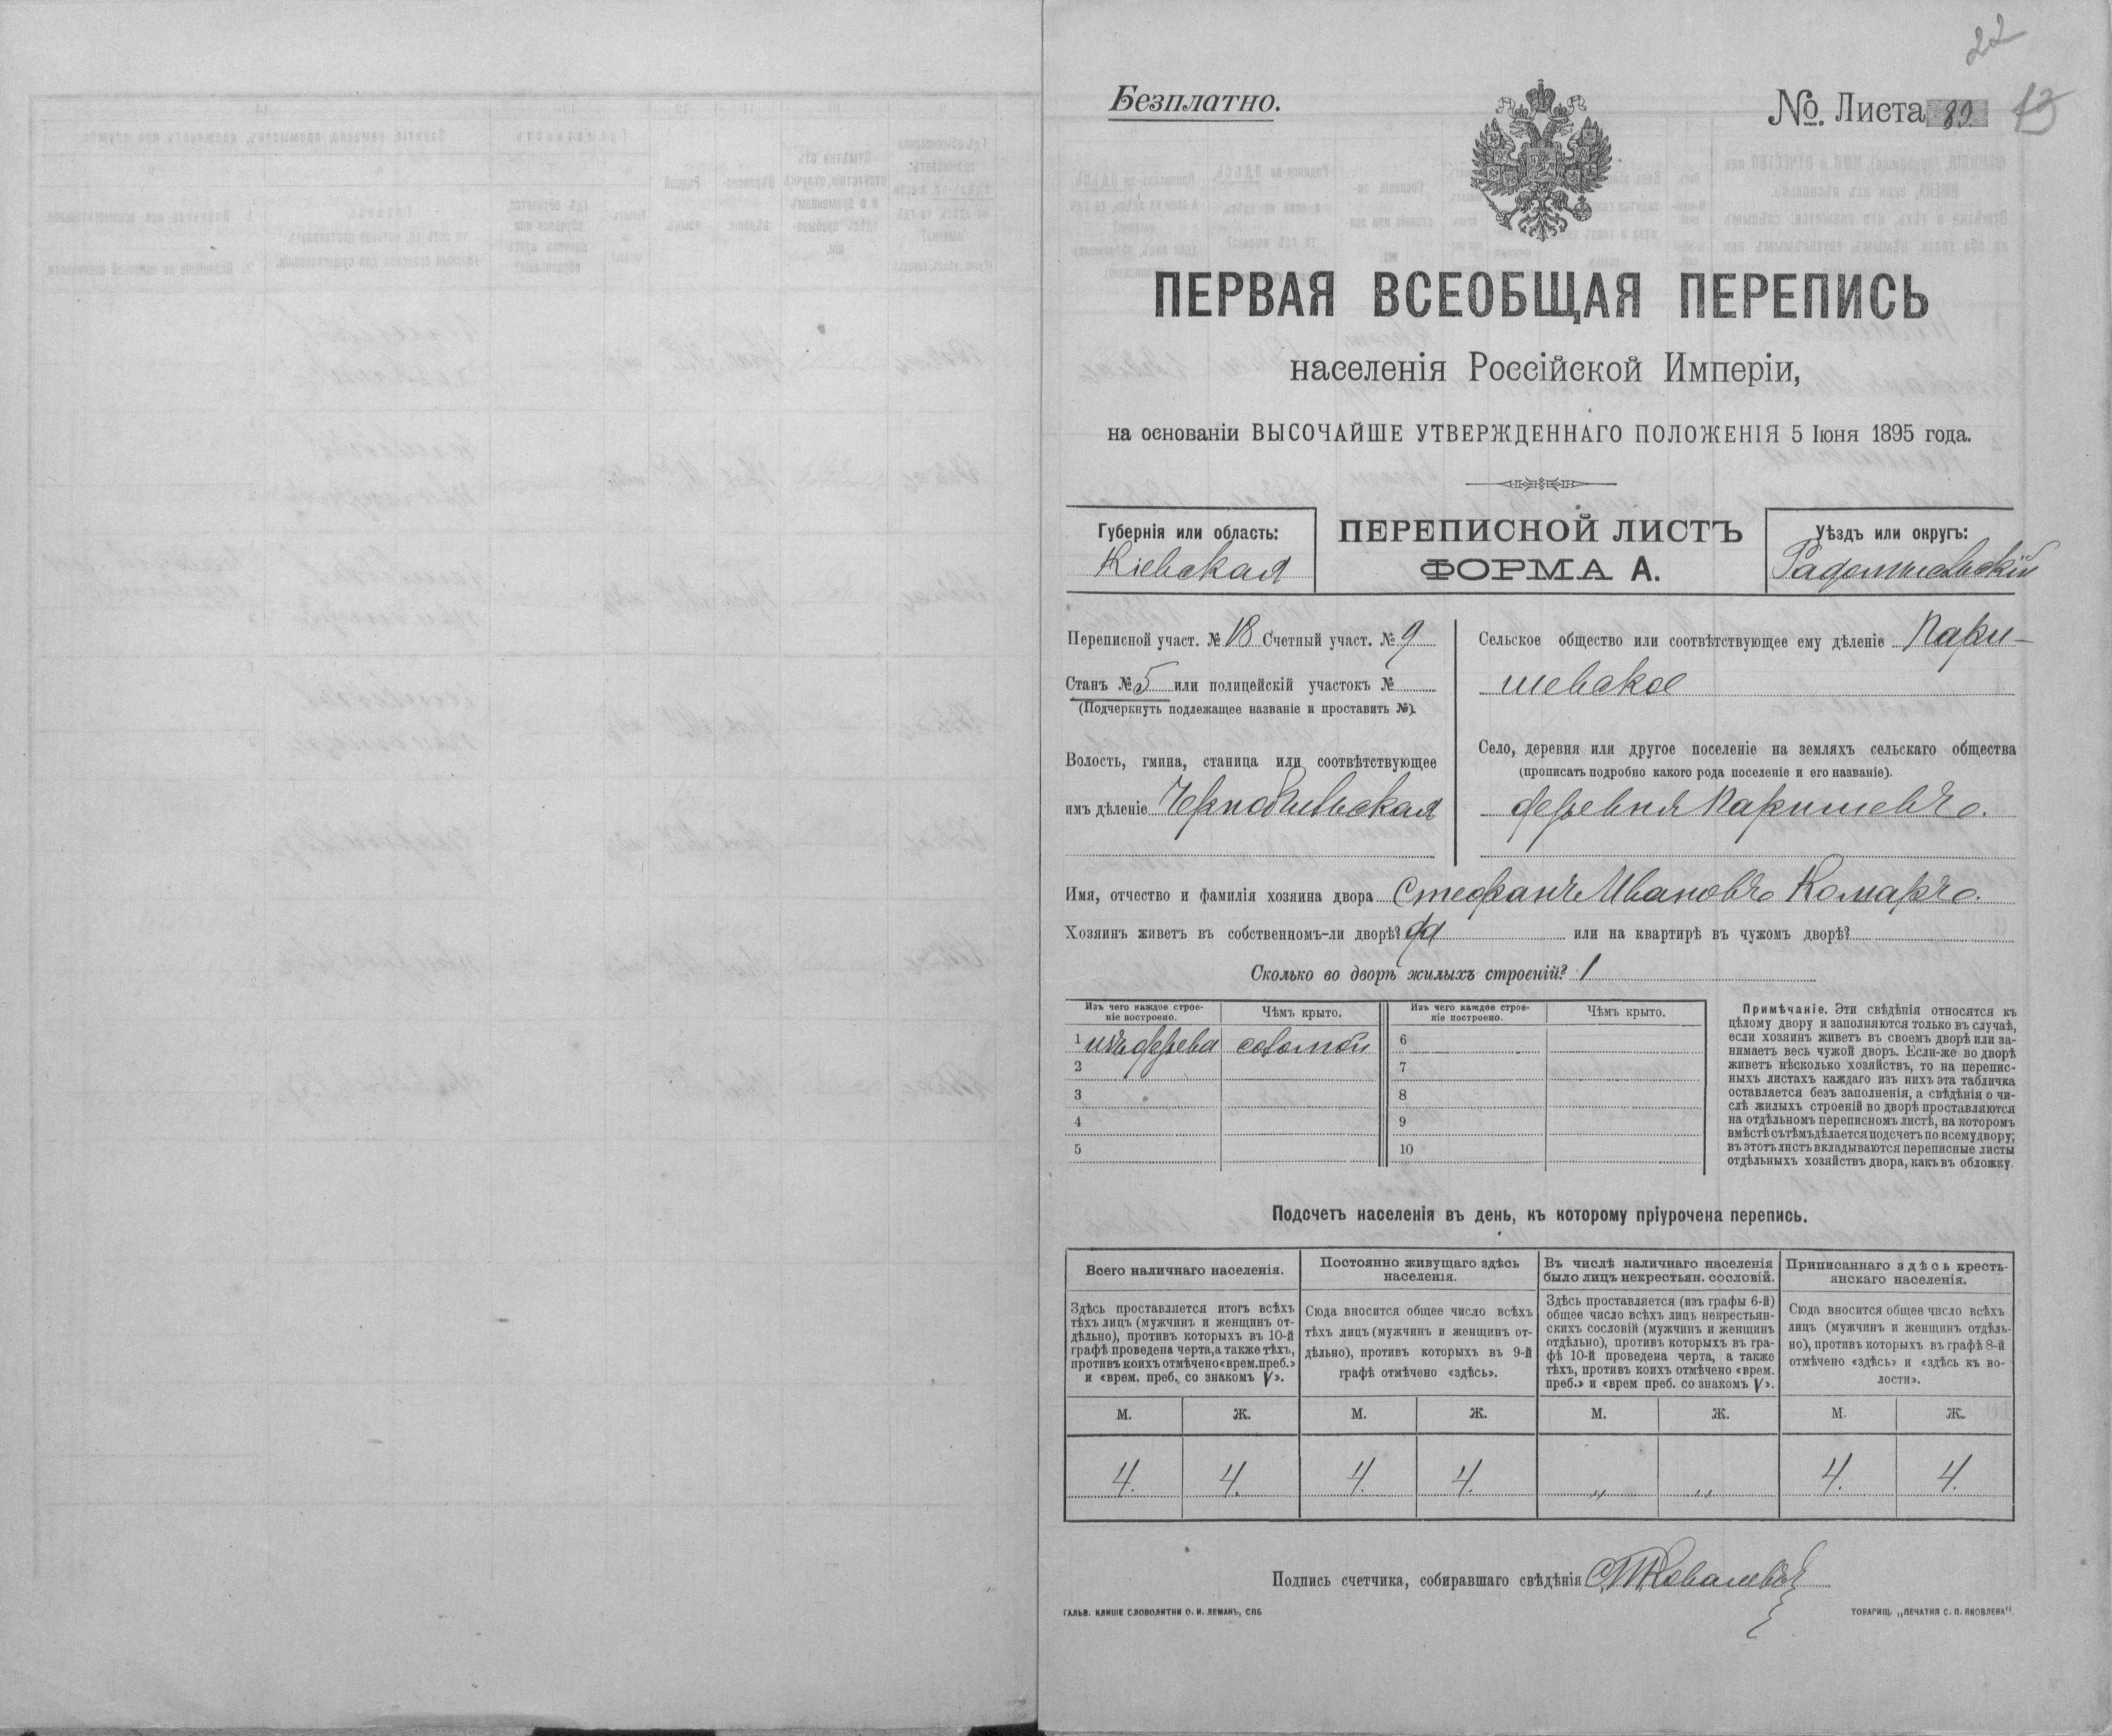 22
Безплатно.
№. Листа 89. 13
ПЕРВАЯ ВСЕОБЩАЯ ПЕРЕПИСЬ
населенія Россійской Имперіи,
на основаніи ВЫСОЧАЙШЕ УТВЕРЖДЕННАГО ПОЛОЖЕНІЯ 5 Іюня 1895 года.
Губернія или область:
Кіевская
ПЕРЕПИСНОЙ ЛИСТЪ
ФОРМА А.
Уѣздъ или округъ:
Радомысльскій
Переписной участ. № 18 Счетный участ. № 9
Станъ № 5 или полицейскій участокъ №
(Подчеркнуть подлежащее названіе и проставить №).
Волость, гмина, станица или соотвѣтствующее
имъ дѣленіе Чернобыльская
Сельское общество или соотвѣтствующее ему дѣленіе Пари-
шевское
Село, деревня или другое поселеніе на земляхъ сельскаго общества
(прописать подробно какого рода поселеніе и его названіе).
деревня Паришевъ.
Имя, отчество и фамилія хозяина двора Стефанъ Ивановъ Комаръ.
Хозяинъ живетъ въ собственномъ-ли дворѣ? да или на квартирѣ въ чужомъ дворѣ?
Сколько во дворѣ жилыхъ строеній? 1
Изъ чего каждое строе-
ніе построено.
Чѣмъ крыто.
Изъ чего каждое строе-
ніе построено.
Чѣмъ крыто.
1 изъ дерева соломой 6
2 7
3 8
4 9
5 10
Примѣчаніе. Эти свѣдѣнія относятся къ
цѣлому двору и заполняются только въ случаѣ,
если хозяинъ живетъ въ своемъ дворѣ или за-
нимаетъ весь чужой дворъ. Если-же во дворѣ
живетъ нѣсколько хозяйствъ, то на перепис-
ныхъ листахъ каждаго изъ нихъ эта табличка
оставляется безъ заполненія, а свѣдѣнія о чи-
слѣ жилыхъ строеній во дворѣ проставляются
на отдѣльномъ переписномъ листѣ, на которомъ
вмѣстѣ съ тѣмъ дѣлается подсчетъ по всему двору;
въ этотъ листъ вкладываются переписные листы
отдѣльныхъ хозяйствъ двора, какъ въ обложку.
Подсчетъ населенія въ день, къ которому пріурочена перепись.
Всего наличнаго населенія.
Здѣсь проставляется итогъ всѣхъ
тѣхъ лицъ (мужчинъ и женщинъ от-
дѣльно), противъ которыхъ въ 10-й
графѣ проведена черта, а также тѣхъ,
противъ коихъ отмѣчено «врем. преб.»
и «врем. преб. со знакомъ V».
Постоянно живущаго здѣсь
населенія.
Сюда вносится общее число всѣхъ
тѣхъ лицъ (мужчинъ и женщинъ от-
дѣльно), противъ которыхъ въ 9-й
графѣ отмѣчено «здѣсь».
Въ числѣ наличнаго населенія
было лицъ некрестьян. сословій.
Здѣсь проставляется (изъ графы 6-й)
общее число всѣхъ лицъ некрестьян-
скихъ сословій (мужчинъ и женщинъ
отдѣльно), противъ которыхъ въ гра-
фѣ 10-й проведена черта, а также
тѣхъ, противъ коихъ отмѣчено «врем.
преб.» и «врем преб. со знакомъ V».
Приписаннаго здѣсь кресть-
янскаго населенія.
Сюда вносится общее число всѣхъ
лицъ (мужчинъ и женщинъ отдѣль-
но), противъ которыхъ въ графѣ 8-й
отмѣчено «здѣсь» и «здѣсь къ во-
лости».
М. Ж. М. Ж. М. Ж. М. Ж.
4. 4. 4. 4. „ „ 4. 4.
Подпись счетчика, собиравшаго свѣдѣнія
ГАЛЬВ. КЛИШЕ СЛОВОЛИТНИ О. И. ЛЕМАНЪ, СПБ
ТОВАРИЩ. „ПЕЧАТНЯ С. П. ЯКОВЛЕВА".